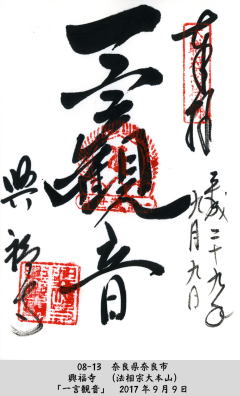 奉拝
平成二十九年
九月九日
一言観音
興福寺
08-13　奈良県奈良市
興福寺　（法相宗大本山）
「一言観音」　2017年9月9日